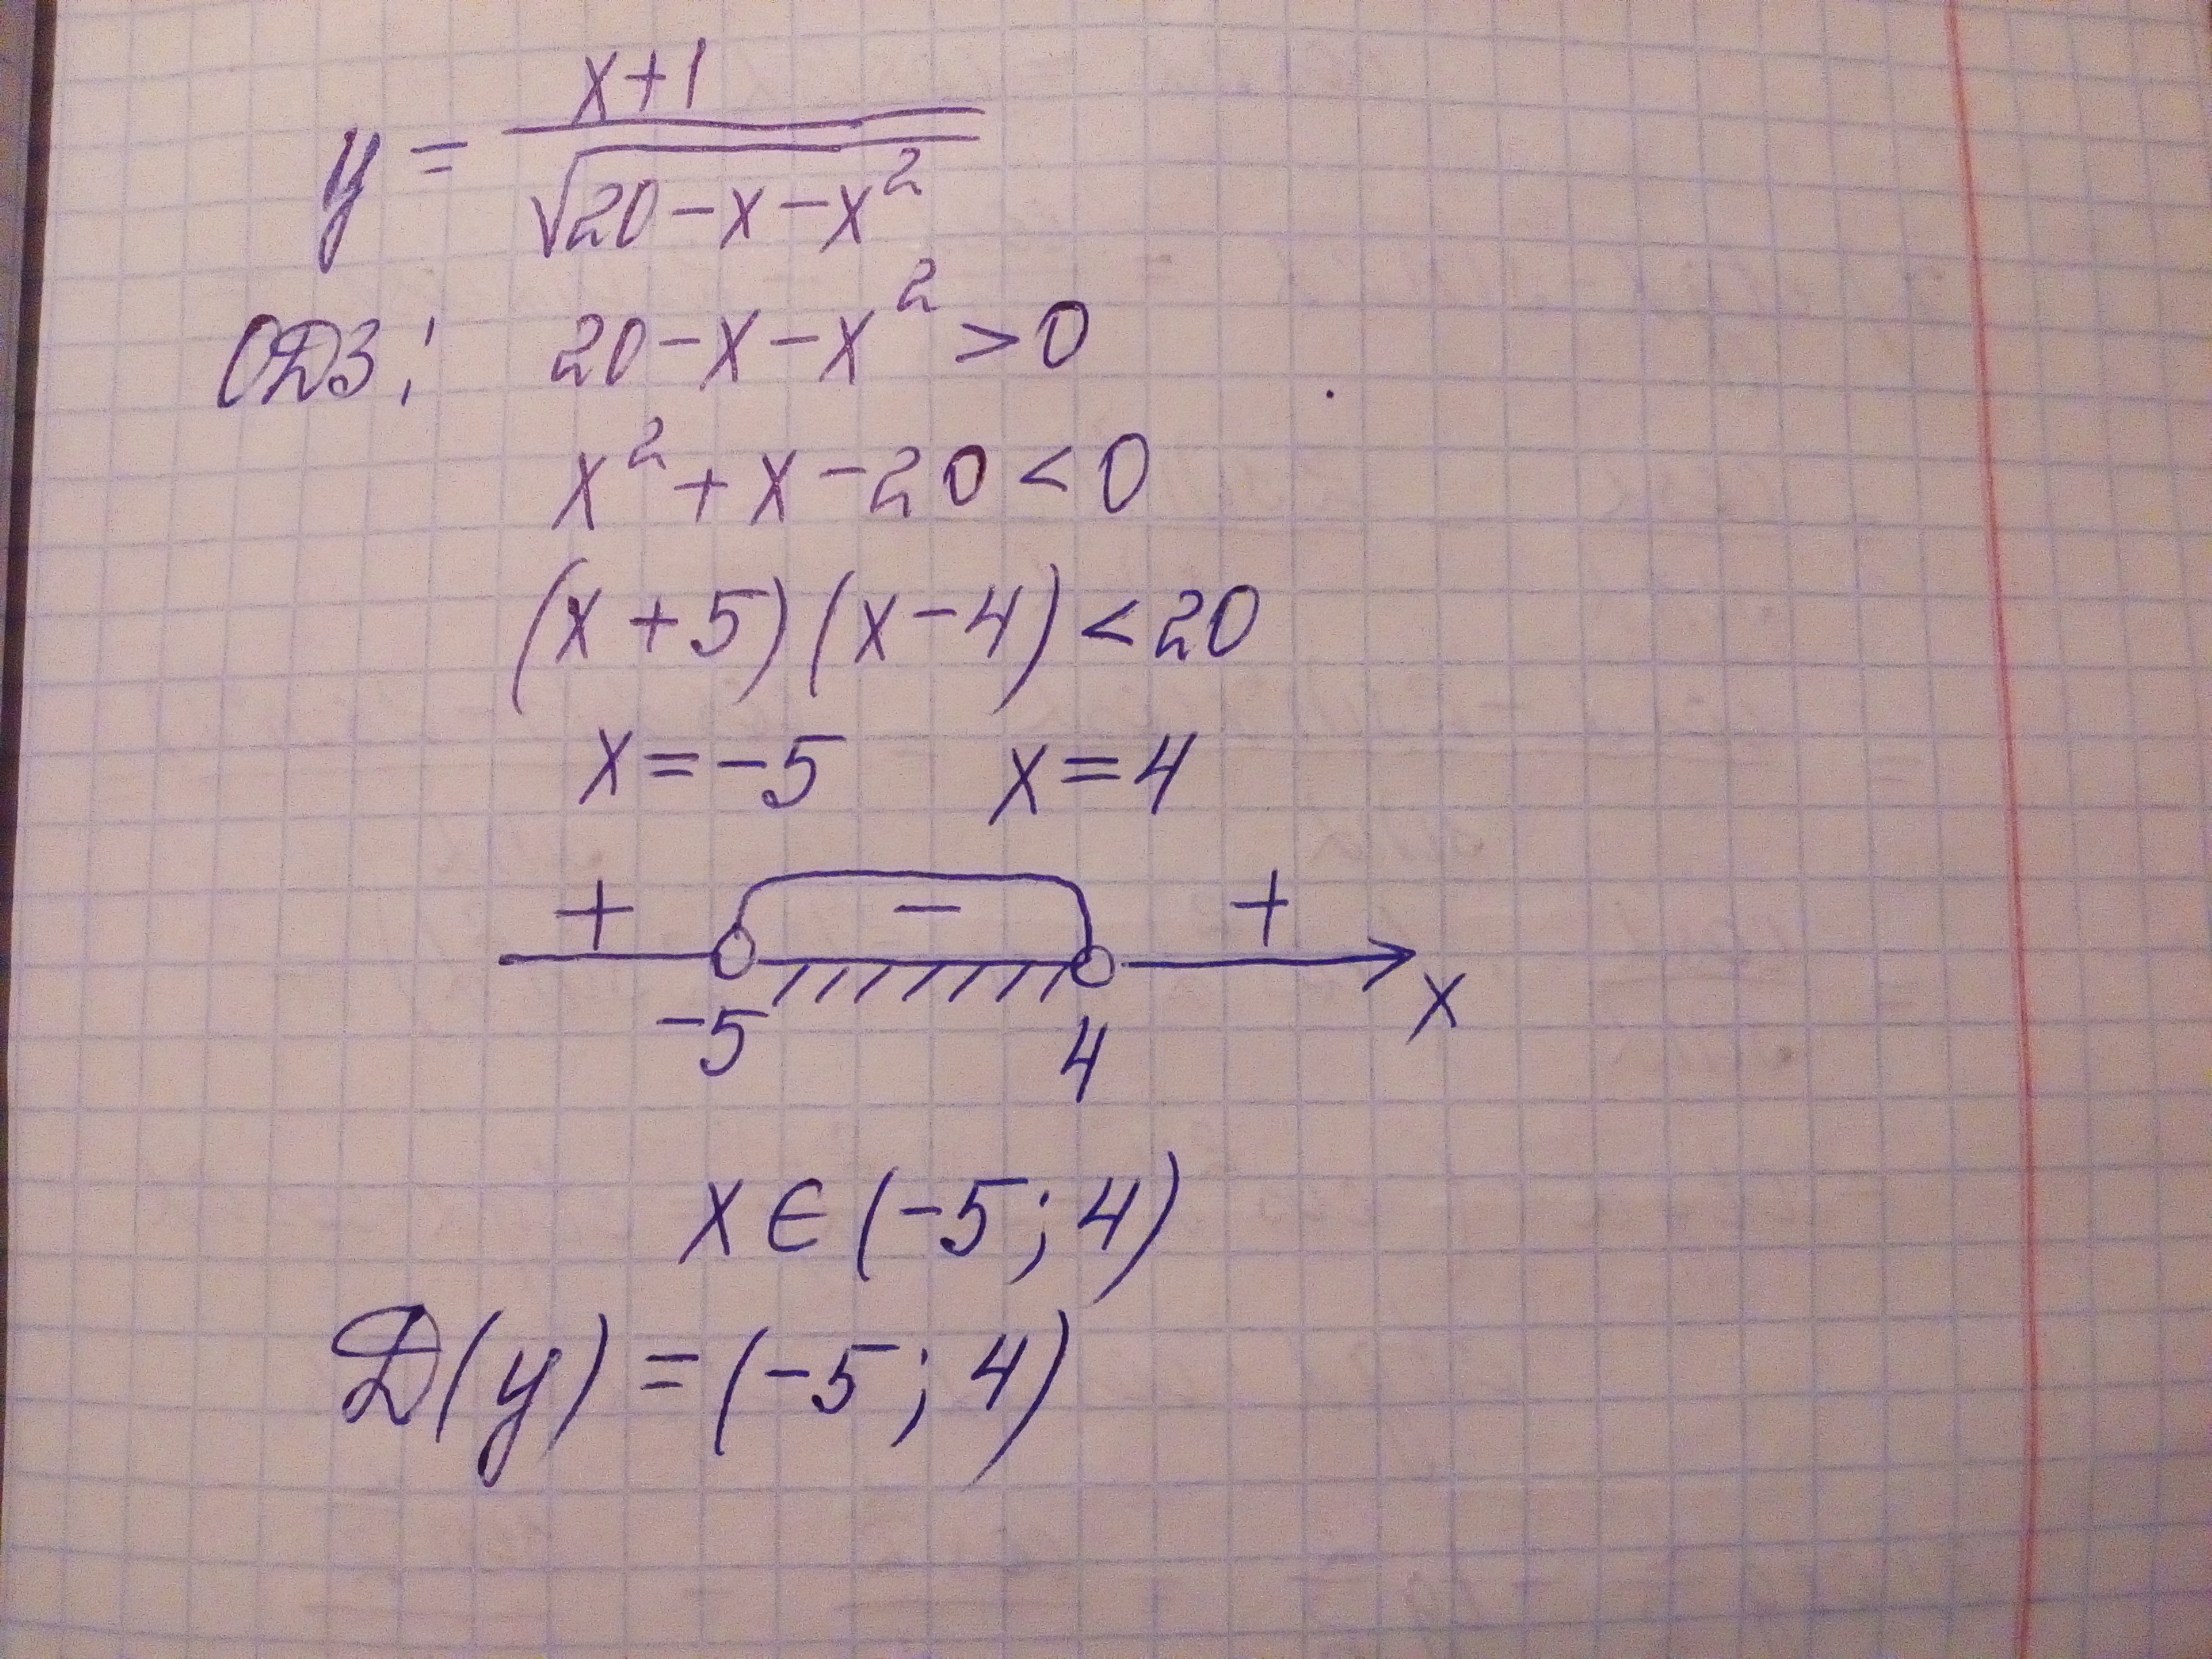 y = x+1 / √20-x-x²
ОДЗ: 20-x-x² >0
x² + x - 20 < 0
(x+5)(x-4) < 20
x = -5 x = 4
+ - +
-5 4 x
x ∈ (-5; 4)
D(y) = (-5; 4)